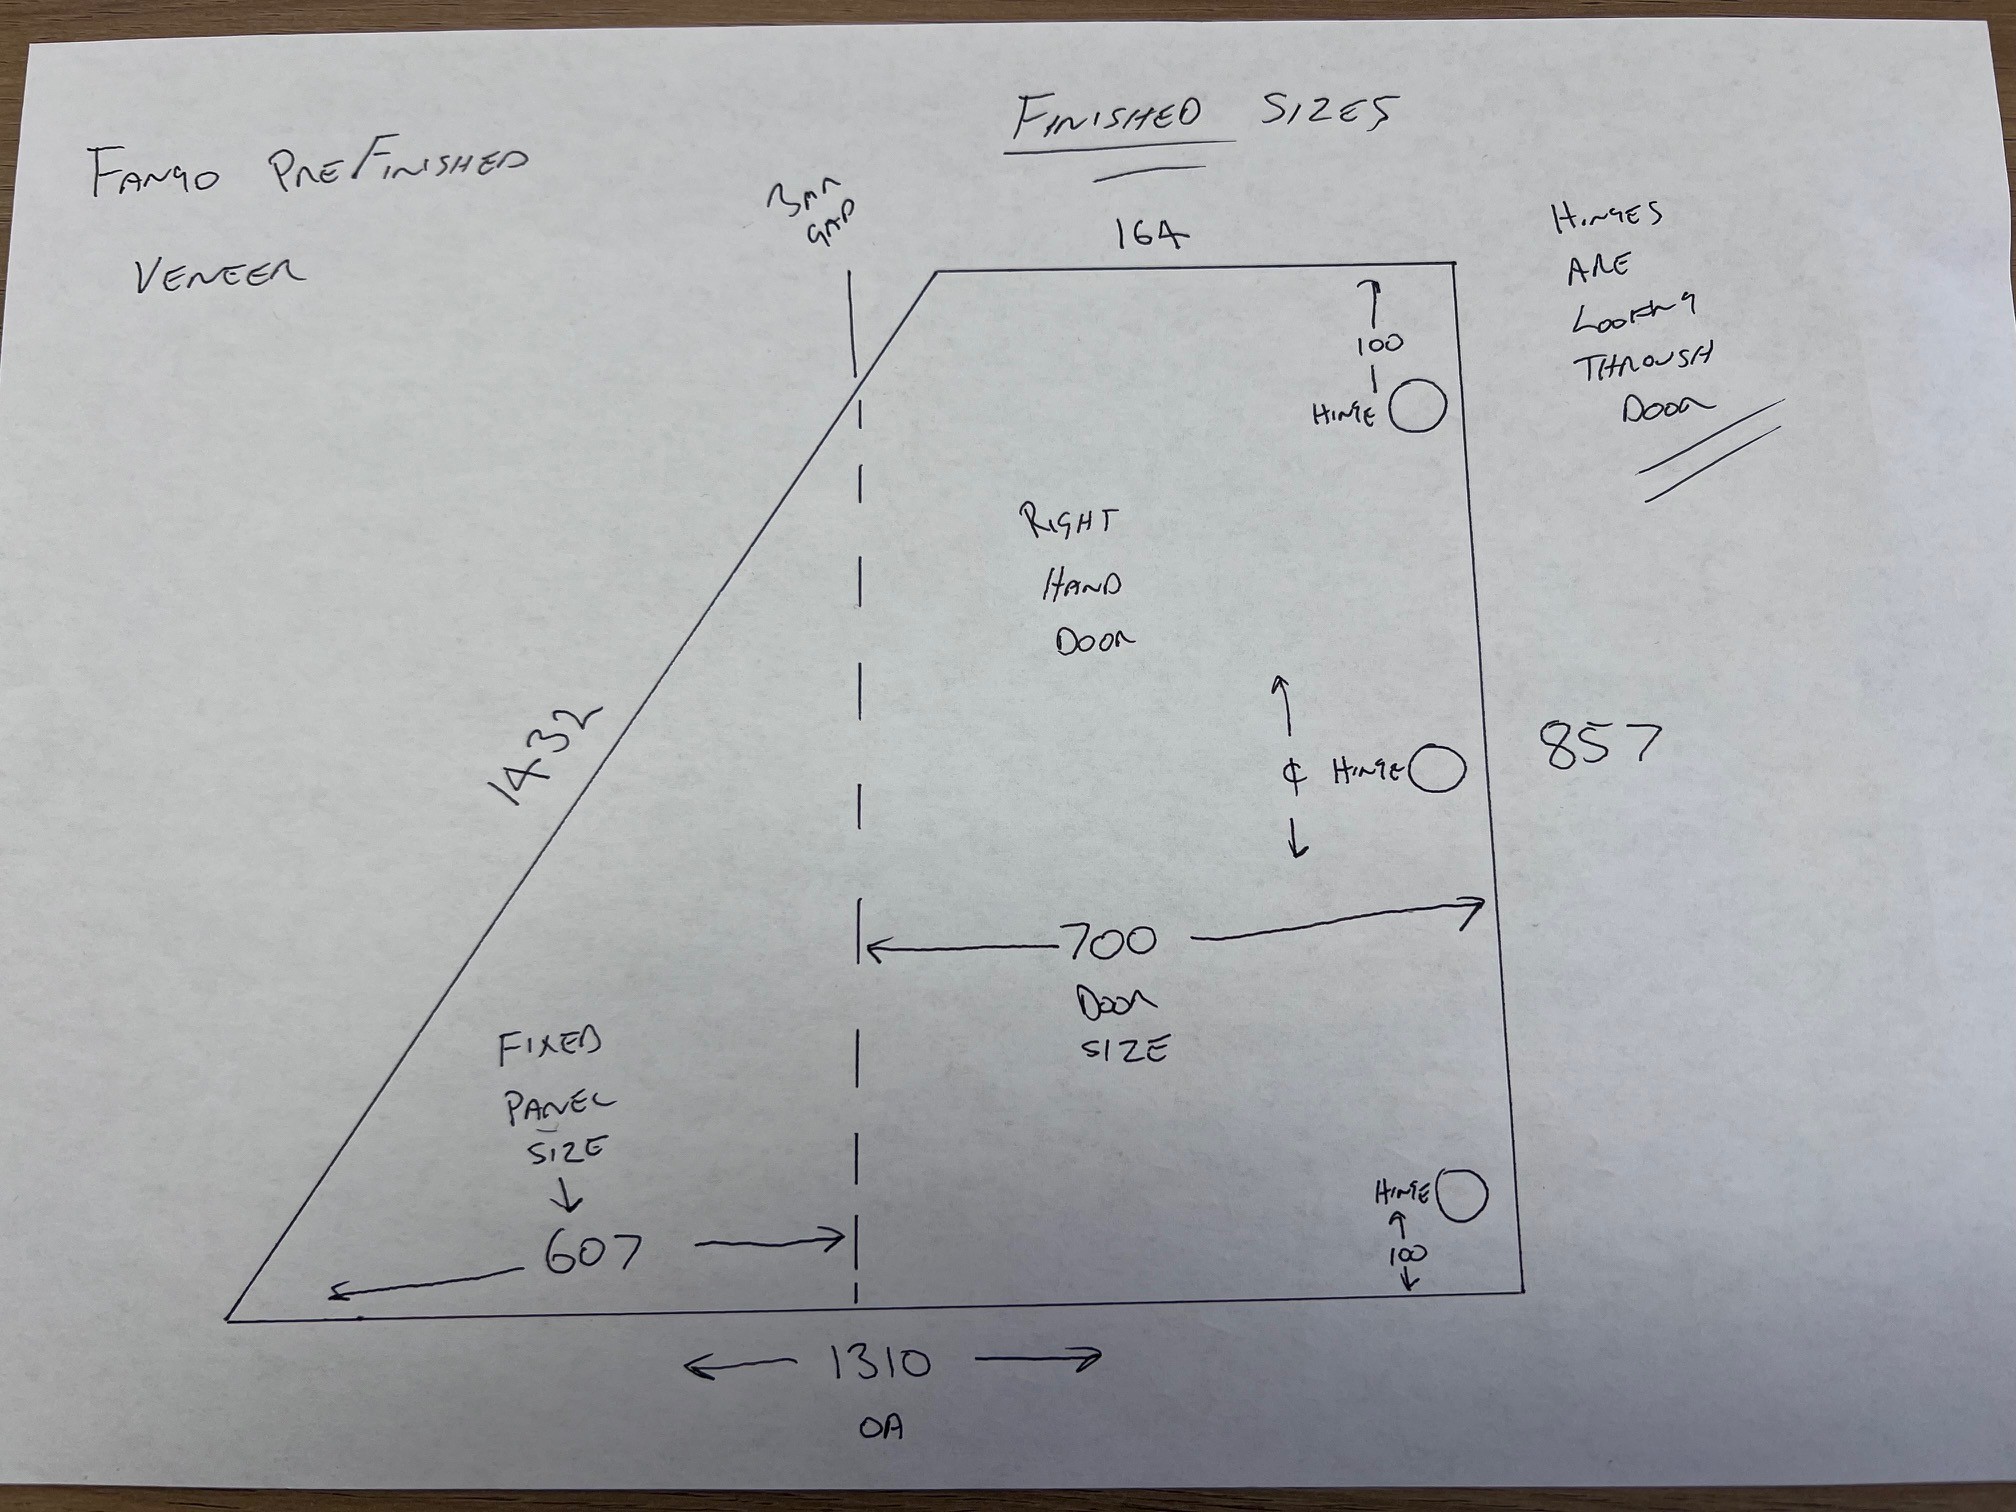 FINISHED SIZES
FANGO PREFINISHED
VENEER
3MM
GAP
164
HINGES
ARE
LOOKING
THROUGH
DOOR
100
HINGE
RIGHT
HAND
DOOR
1432
¢ HINGE
857
700
DOOR
SIZE
FIXED
PANEL
SIZE
607
HINGE
100
1310
OA